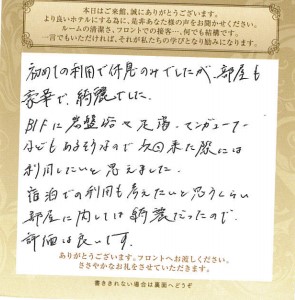 本日はご来館、誠にありがとうございます。
より良いホテルにする為に、是非あなた様の声をお聞かせください。
ルームの清潔さ、フロントでの接客…、何でも結構です。
一言でもいただければ、それが私たちの学びとなり励みになります。
初めての利用で休憩のみでしたが、部屋も
豪華で、綺麗でした。
B1Fに岩盤浴や足湯、マンガコーナー
などもあるそうなので次回来た際には
利用したいと思えました。
宿泊での利用も考えたいと思うくらい
部屋に関しては綺麗だったので、
評価は良いです。
ありがとうございます。フロントへお渡しください。
ささやかなお礼をさせていただきます。
書ききれない場合は裏面へどうぞ